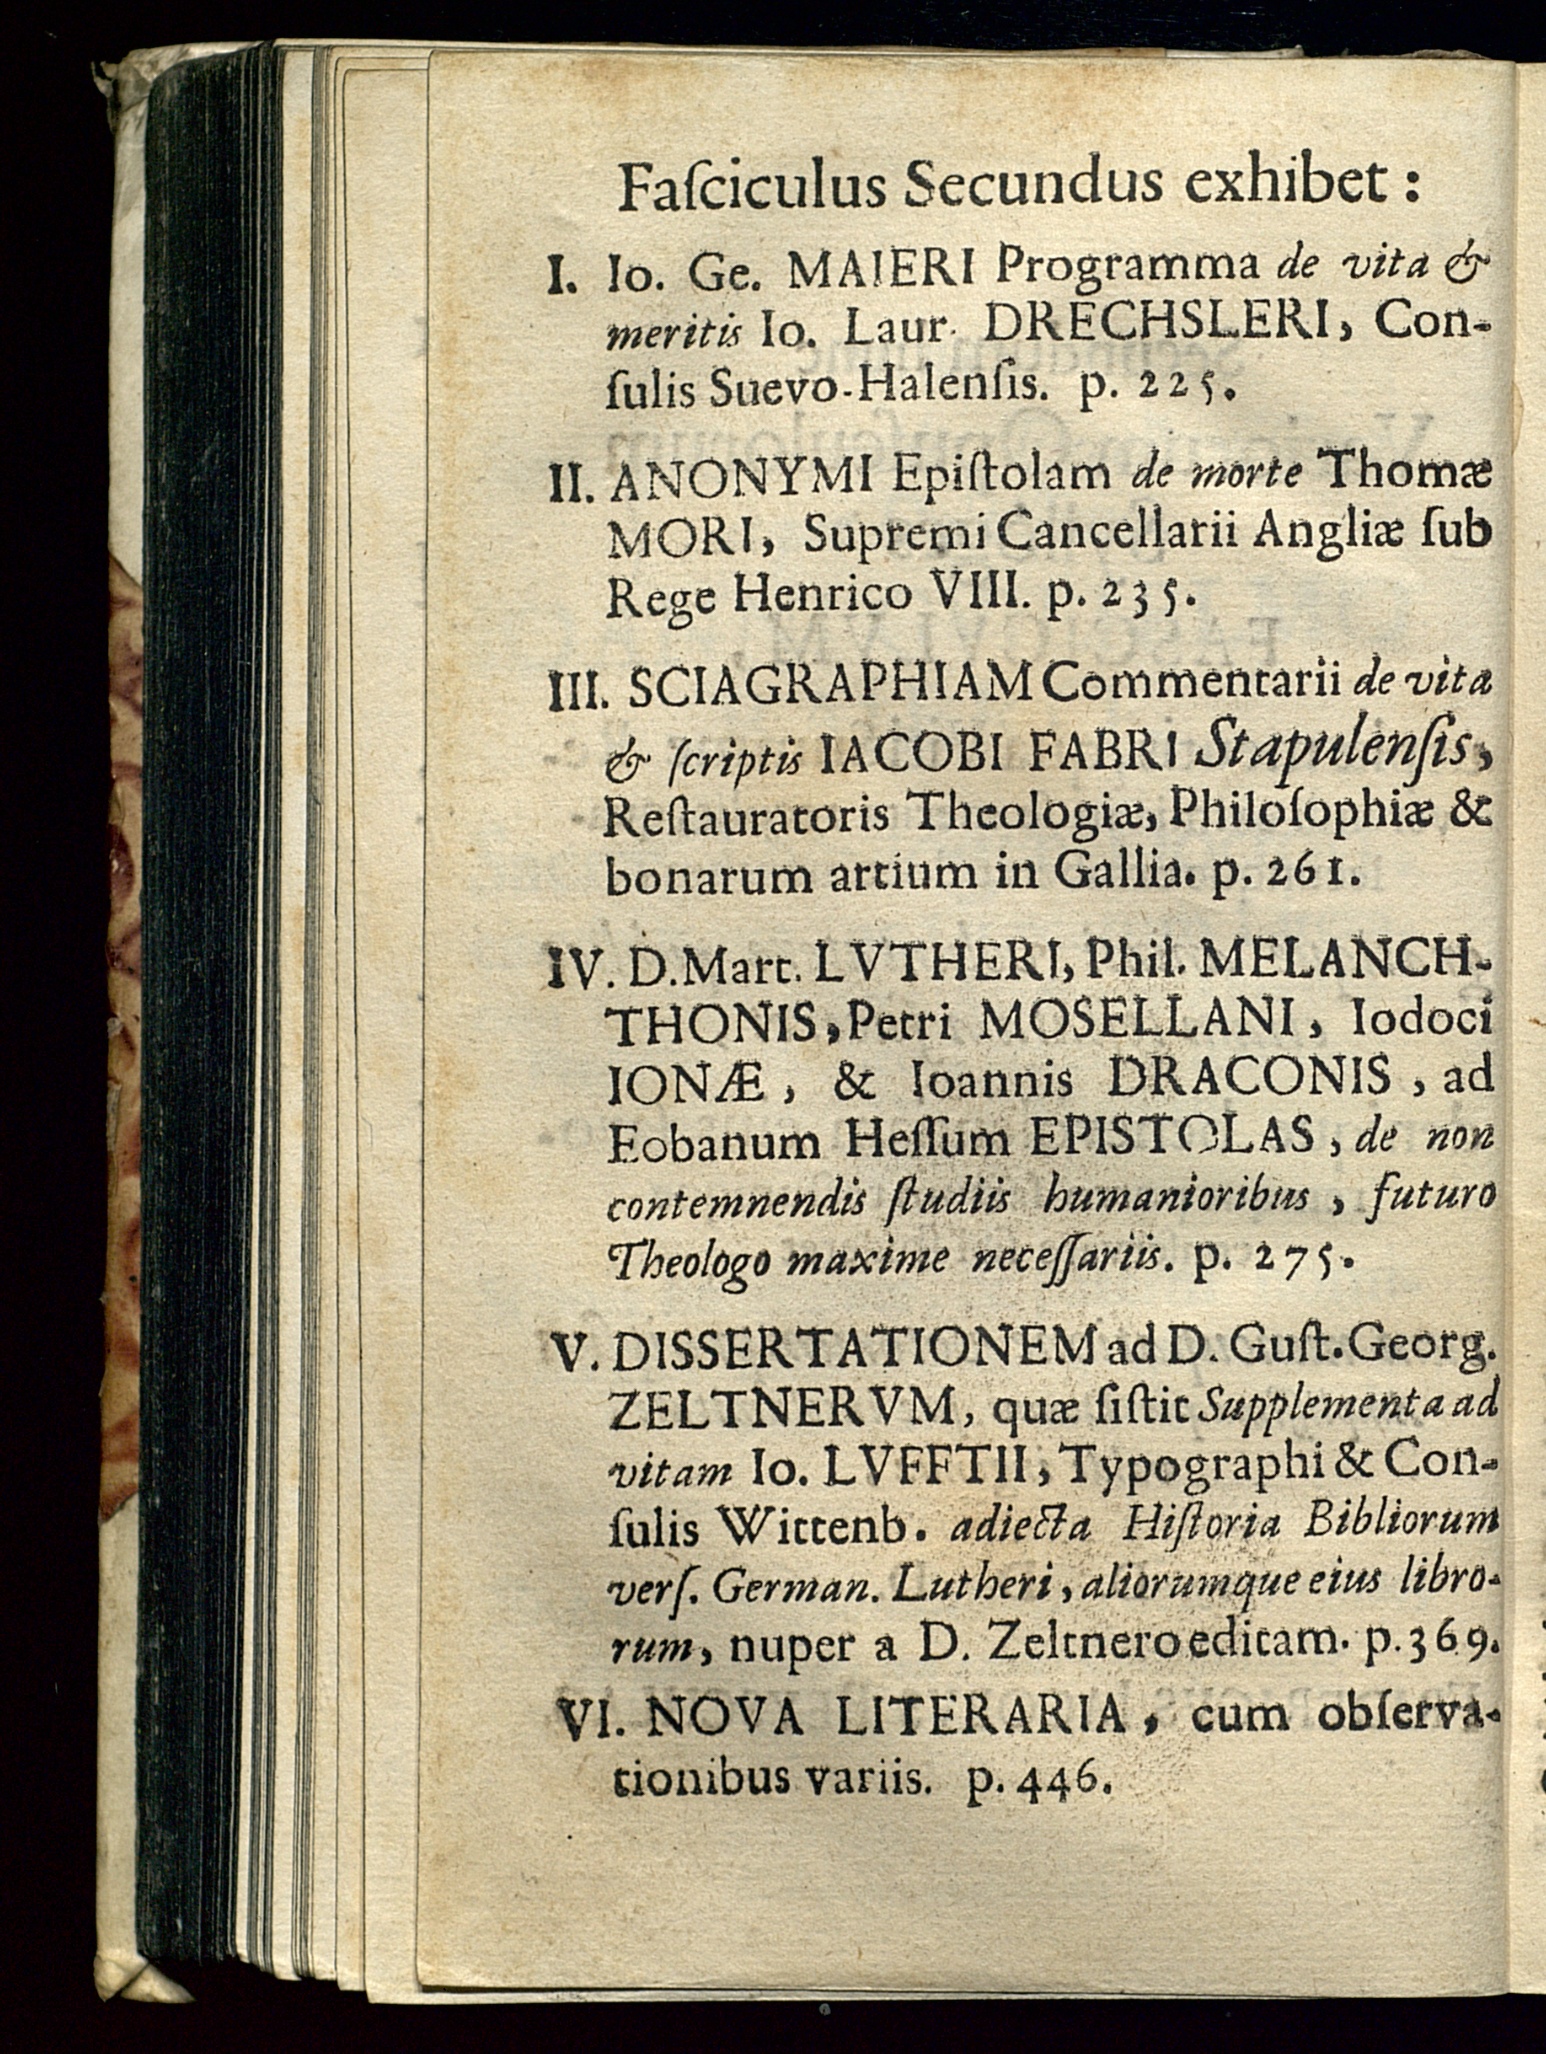 Faſciculus Secundus exhibet :
I. Io. Ge. MAIERI Programma de vita &
meritis Io. Laur. DRECHSLERI, Con-
ſulis Suevo-Halenſis. p. 225.
II. ANONYMI Epiſtolam de morte Thomæ
MORI, Supremi Cancellarii Angliæ ſub
Rege Henrico VIII. p. 235.
III. SCIAGRAPHIAM Commentarii de vita
& ſcriptis IACOBI FABRI Stapulenſis,
Reſtauratoris Theologiæ, Philoſophiæ &
bonarum artium in Gallia. p. 261.
IV. D. Mart. LVTHERI, Phil. MELANCH-
THONIS, Petri MOSELLANI, Iodoci
IONÆ, & Ioannis DRACONIS, ad
Eobanum Heſſum EPISTOLAS, de non
contemnendis ſtudiis humanioribus, futuro
Theologo maxime neceſſariis. p. 275.
V. DISSERTATIONEM ad D. Guſt. Georg.
ZELTNERVM, quæ ſiſtit Supplementa ad
vitam Io. LVFFTII, Typographi & Con-
ſulis Wittenb. adiecta Hiſtoria Bibliorum
verſ. German. Lutheri, aliorumque eius libro-
rum, nuper a D. Zeltnero editam. p. 369.
VI. NOVA LITERARIA, cum obſerva-
tionibus variis. p. 446.